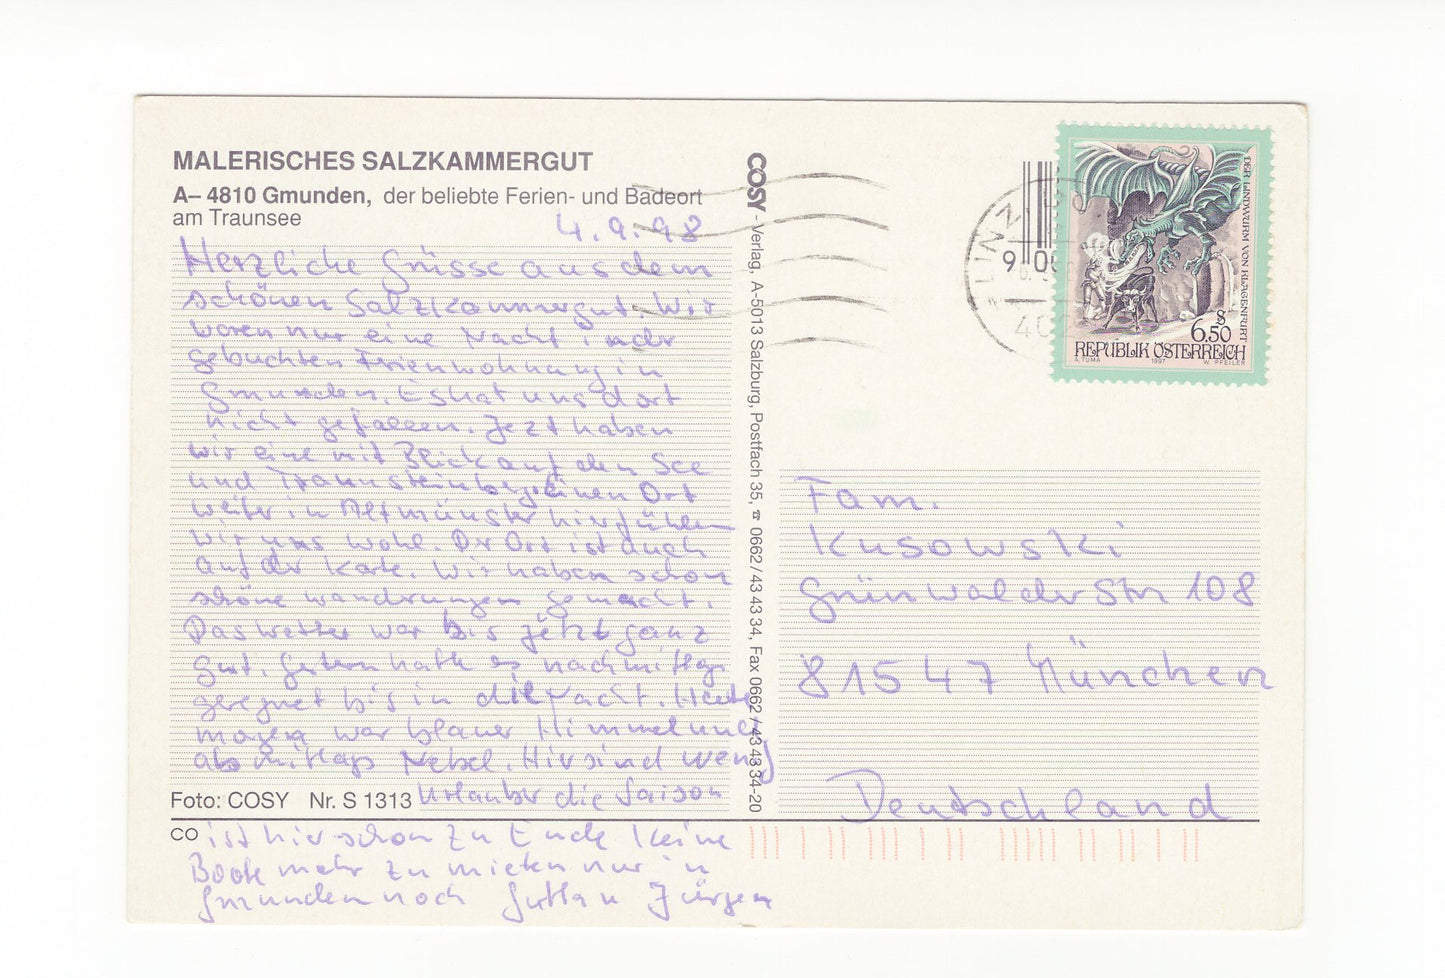 MALERISCHES SALZKAMMERGUT
A– 4810 Gmunden, der beliebte Ferien- und Badeort
am Traunsee
4.9.98
Herzliche Grüsse aus dem
schönen Salzkammergut. Wir
waren nur eine Nacht in der
gebuchten Ferienwohnung in
Gmunden. Es hat uns dort
nicht gefallen. Jezt haben
wir eine mit Blick auf den See
und Traunstein einen Ort
weiter in Altmünster hier fühlen
wir uns wohl. Der Ort ist auch
auf der Karte. Wir haben schon
schöne wandrungen gemacht.
Das wetter war bis jetzt ganz
gut. Gestern hatte es nachmittags
geregnet bis in die Nacht. Heute
morgen war blauer Himmel und
ab mittags Nebel. Hir sind wenig
Foto: COSY Nr. S 1313 Urlauber die Saison
CO ist hir schon zu Ende keine
Boote mehr zu mieten nur in
Gmunden noch Jürgen
COSY - Verlag, A-5013 Salzburg, Postfach 35, ☎ 0662/43 43 34, Fax 0662/43 43 34-20
LINZ
DER LINDWURM VON KLAGENFURT
S
6.50
REPUBLIK ÖSTERREICH
A. TUMA 1997 W. PFEILER
Fam.
Kusowski
Grünwalder Str 108
81547 München
Deutschland